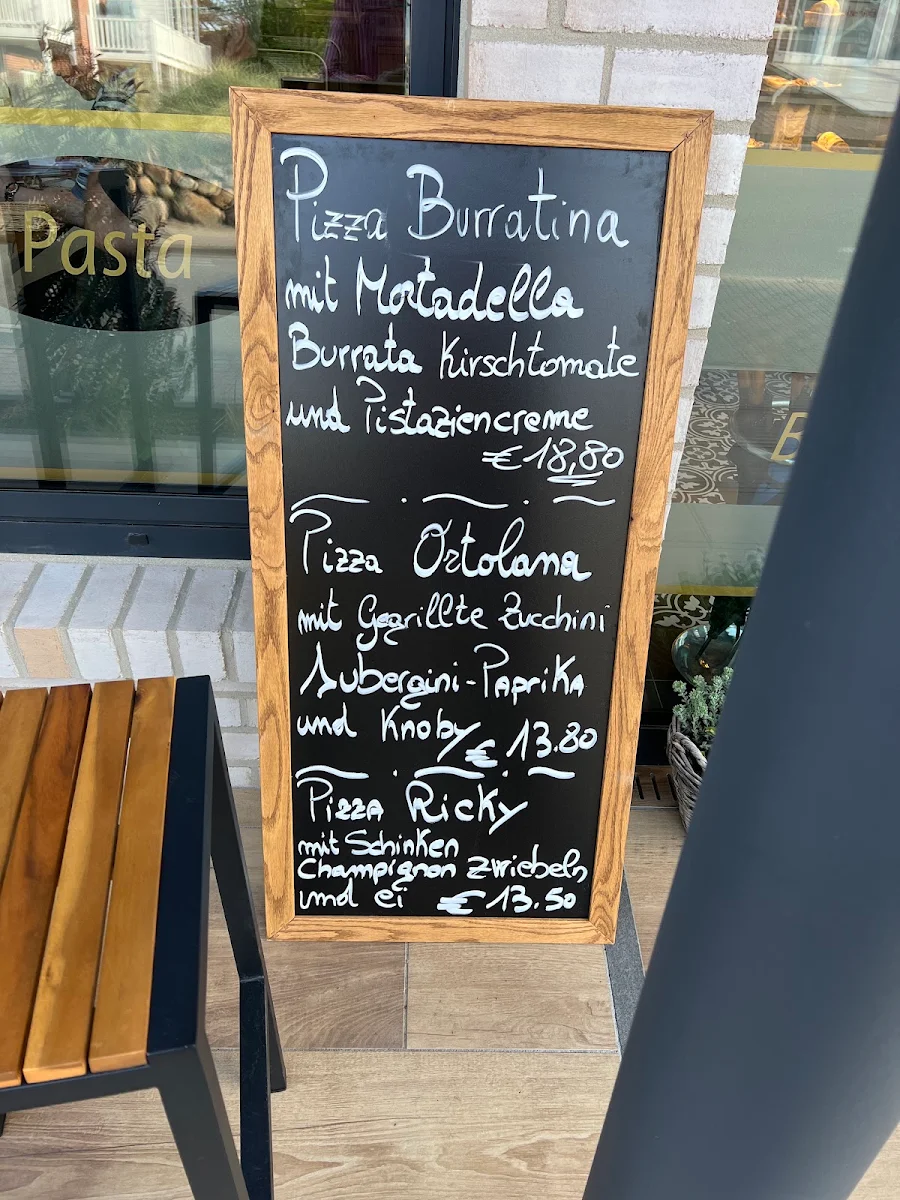 Pasta
Pizza Burratina
mit Mortadella
Burrata Kirschtomate
und Pistaziencreme
€18,80
Pizza Ortolana
mit Gegrillte Zucchini
Aubergini-Paprika
und Knoby € 13.80
Pizza Ricky
mit Schinken
Champignon Zwiebeln
und ei € 13.50